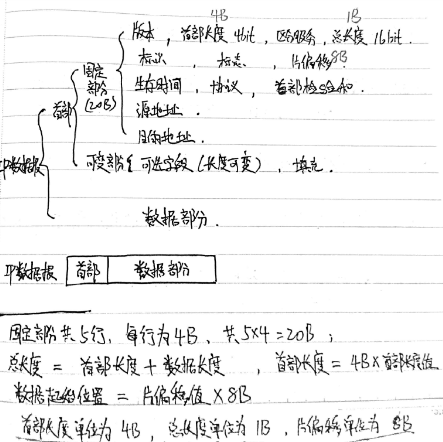 4B 1B
版本，首部长度 4bit，区分服务，总长度 16bit.
标识，标志，片偏移 8B
生存时间，协议，首部检验和.
源地址.
目的地址.
固定部分(20B)
首部
可变部分{可选字段(长度可变)，填充.
IP数据报
数据部分.
IP数据报 首部 数据部分
固定部分共5行，每行为4B，共5×4=20B；
总长度 = 首部长度 + 数据长度，首部长度 = 4B×首部长度值
数据起始位置 = 片偏移值 × 8B
首部长度单位为 4B，总长度单位为 1B，片偏移单位为 8B